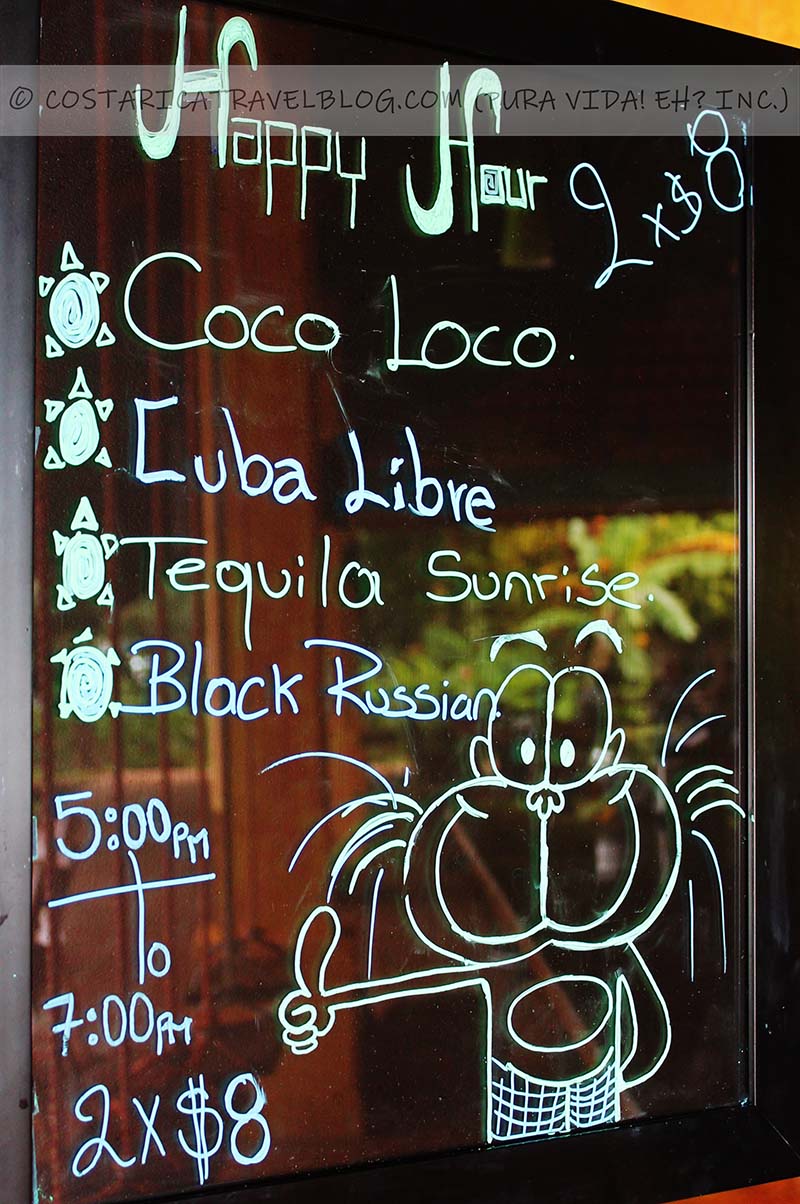 © COSTARICATRAVELBLOG.COM (PURA VIDA! EH? INC.)
Happy Hour 2x$8
Coco Loco.
Cuba Libre
Tequila Sunrise.
Black Russian.
5:00PM
To
7:00PM
2x$8